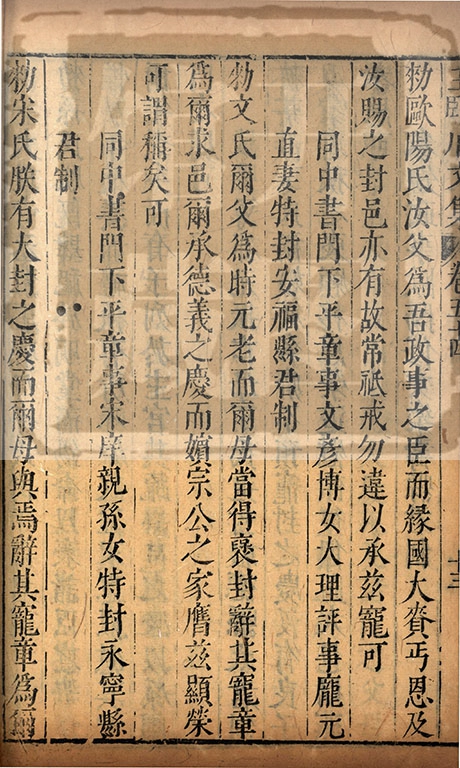 王臨川文集 卷五十四 十三
勑歐陽氏汝父爲吾政事之臣而緣國大賚丐恩及
汝賜之封邑亦有故常祇戒勿違以承兹寵可
同中書門下平章事文彥博女大理評事龐元
直妻特封安福縣君制
勑文氏爾父爲時元老而爾母當得褒封辭其寵章
爲爾求邑爾承德義之慶而嬪宗公之家膺兹顯榮
可謂稱矣可
同中書門下平章事宋庠親孫女特封永寧縣
君制
勑宋氏朕有大封之慶而爾母與焉辭其寵章爲爾